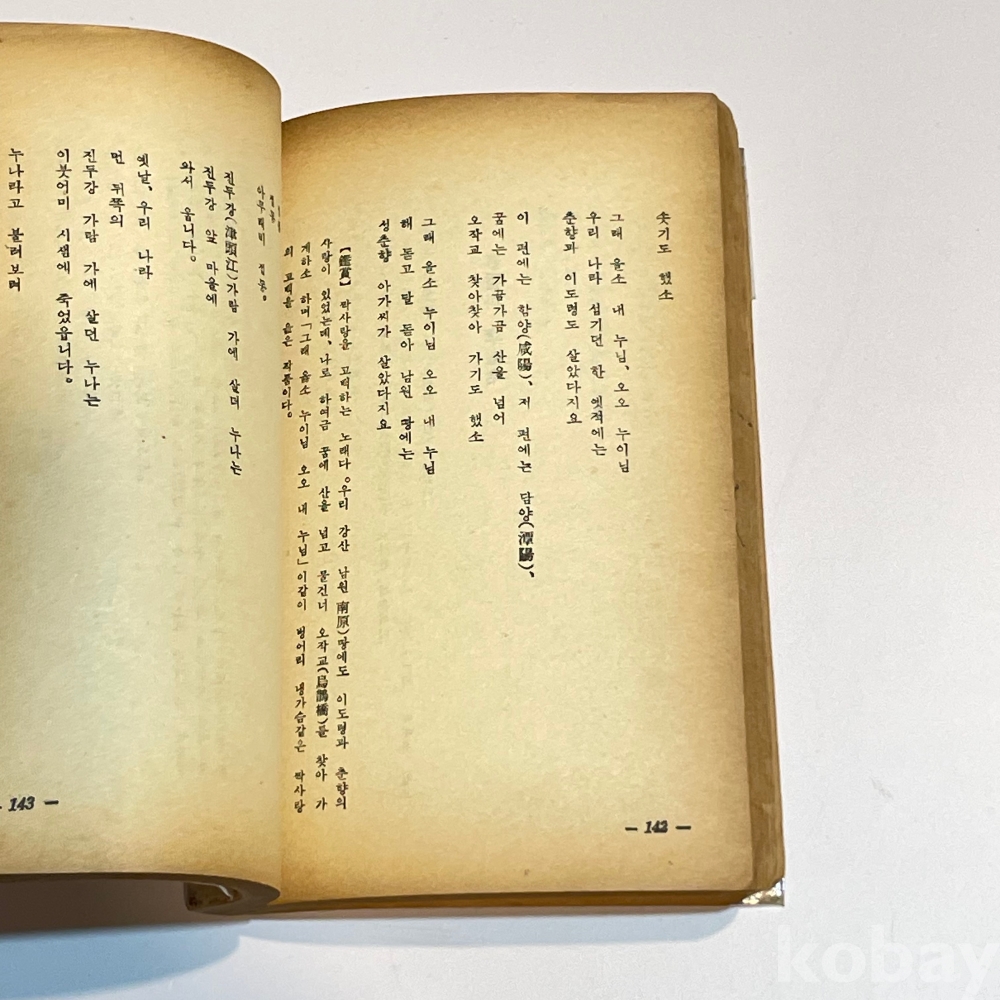 솟기도 했소
그래 올소 내 누님, 오오 누이님
우리 나라 섬기던 한 옛적에는
춘향과 이도령도 살았다지요
이 편에는 함양(咸陽)、저 편에는 담양(潭陽)、
꿈에는 가끔가끔 산을 넘어
오작교 찾아찾아 가기도 했소
그래 올소 누이님 오오 내 누님
해 돋고 달 돋아 남원 땅에는
성춘향 아가씨가 살았다지요
【鑑賞】 짝사랑을 고백하는 노래다。우리 강산 남원 南原)땅에도 이도령과 춘향의
사랑이 있었는데、나로 하여금 꿈에 산을 넘고 물건너 오작교(烏鵲橋)를 찾아 가
게하소 하며「그래 올소 누이님 오오 내 누님」이같이 벙어리 냉가슴같은 짝사랑
의 고백을 읊은 작품이다。
— 142 —
접동
아우래비 접동。
진두강(津頭江)가람 가에 살며 누나는
진두강 앞 마을에
와서 웁니다。
옛날、우리 나라
먼 뒤쪽의
진두강 가람 가에 살던 누나는
이붓어미 시샘에 죽었읍니다。
누나라고 불러보려
— 143 —
kobay